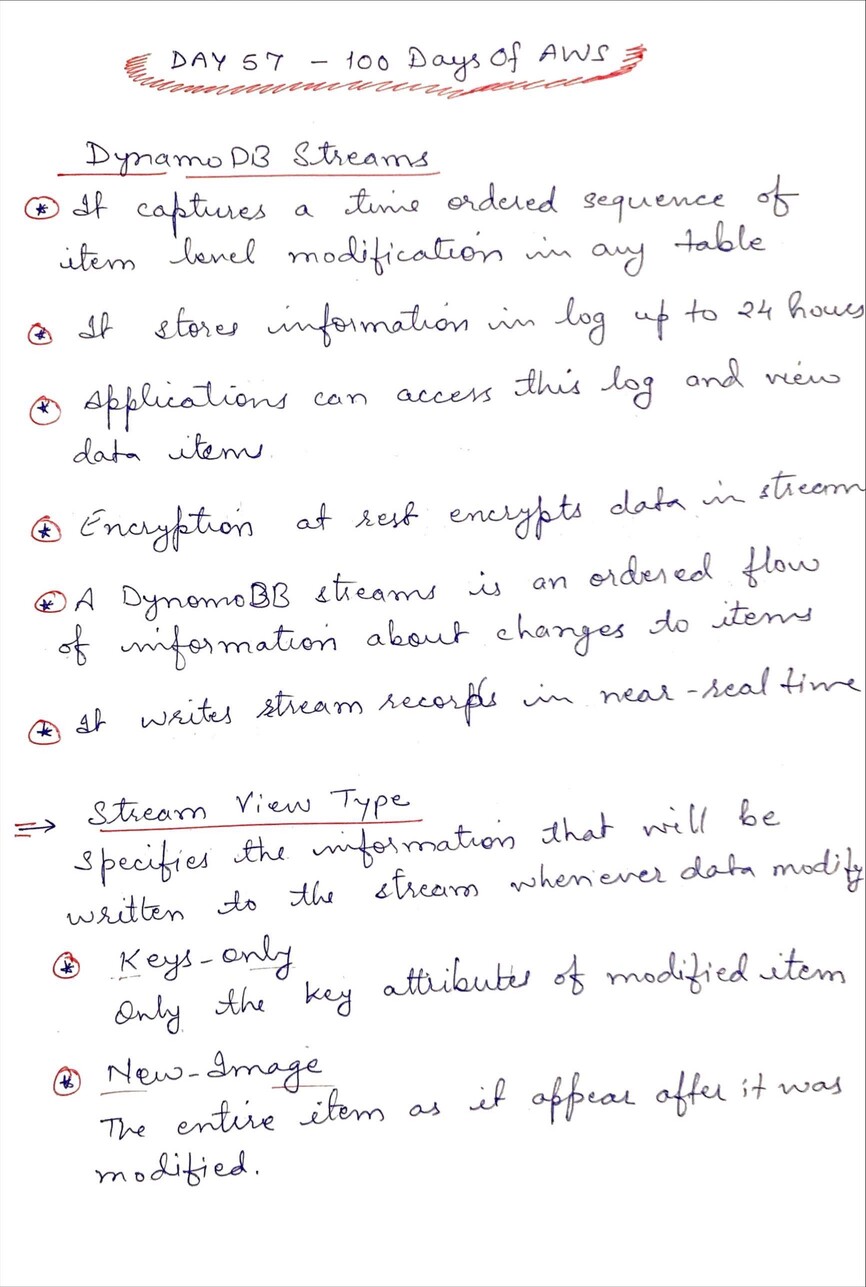 DAY 57 - 100 Days Of AWS
DynamoDB Streams
* It captures a time ordered sequence of
item level modification in any table
* It stores information in log up to 24 hours
* Applications can access this log and view
data items.
* Encryption at rest encrypts data in stream
* A DynomoBB streams is an ordered flow
of information about changes to items
* It writes stream records in near-real time
⇒ Stream View Type
Specifies the information that will be
written to the stream whenever data modify
* Keys-only
Only the key attributes of modified item
* New-Image
The entire item as it appear after it was
modified.